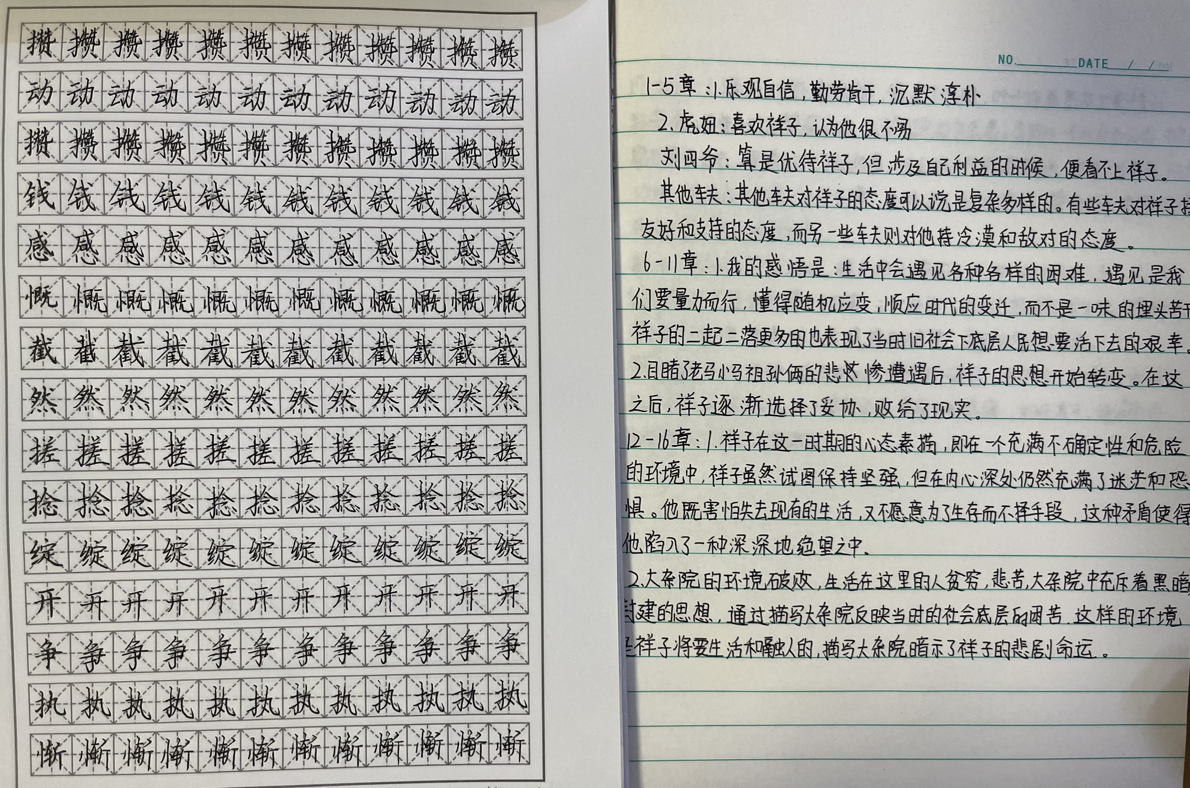 攒攒攒攒攒攒攒攒攒攒攒攒
动动动动动动动动动动动动
攒攒攒攒攒攒攒攒攒攒攒攒
钱钱钱钱钱钱钱钱钱钱钱钱
感感感感感感感感感感感感
慨慨慨慨慨慨慨慨慨慨慨慨
截截截截截截截截截截截截
然然然然然然然然然然然然
搓搓搓搓搓搓搓搓搓搓搓搓
捻捻捻捻捻捻捻捻捻捻捻捻
绽绽绽绽绽绽绽绽绽绽绽绽
开开开开开开开开开开开开
争争争争争争争争争争争争
执执执执执执执执执执执执
惭惭惭惭惭惭惭惭惭惭惭惭
NO. DATE / /
1-5章:1.乐观自信,勤劳肯干,沉默淳朴
2.虎妞:喜欢祥子,认为他很不易
刘四爷:算是优待祥子,但涉及自己利益的时候,便看不上祥子。
其他车夫:其他车夫对祥子的态度可以说是复杂多样的。有些车夫对祥子持
友好和支持的态度,而另一些车夫则对他持冷漠和敌对的态度。
6-11章:1.我的感悟是:生活中会遇见各种各样的困难,遇见是我
们要量力而行,懂得随机应变,顺应时代的变迁,而不是一味的埋头苦干
祥子的二起二落更多的也表现了当时旧社会下底层人民想要活下去的艰辛。
2.目睹了老马小马祖孙俩的悲惨遭遇后,祥子的思想开始转变。在这
之后,祥子逐渐选择了妥协,败给了现实。
12-16章:1.祥子在这一时期的心态素描,即在一个充满不确定性和危险
的环境中,祥子虽然试图保持坚强,但在内心深处仍然充满了迷茫和恐
惧。他既害怕失去现有的生活,又不愿意为了生存而不择手段,这种矛盾使得
他陷入了一种深深地绝望之中.
2.大杂院的环境破败,生活在这里的人贫穷,悲苦,大杂院中充斥着黑暗
封建的思想,通过描写大杂院反映当时的社会底层的困苦,这样的环境
是祥子将要生活和融入的,描写大杂院暗示了祥子的悲剧命运。